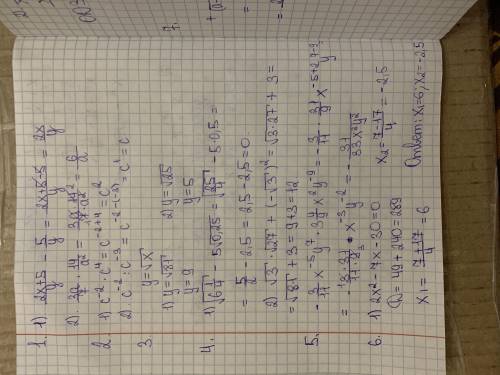 1. 1) (2x+5)/y - 5/y = (2x+5-5)/y = 2x/y
2) 3a/7 · 14/a² = 3a·14²/7·a² = 6/a
2 1) c⁻² · c⁴ = c⁻²⁺⁴ = c²
2) c⁻² : c⁻³ = c⁻²⁻⁽⁻³⁾ = c¹ = c
3. y = √x
1) y = √81 2) y = √25
y = 9 y = 5
4. 1) √(6 1/4) - 5√0,25 = √(25/4) - 5·0,5 =
= 5/2 - 2,5 = 2,5 - 2,5 = 0
2) √3 · √27 + (-√3)² = √3·27 + 3 =
= √81 + 3 = 9+3 = 12
5. - 3/11 x⁻⁵ y⁷ · 31/9 x² y⁻⁹ = - 3/11 · 31/9 x⁻⁵⁺² y⁷⁻⁹
= - x⁻³ y⁻² = - 31/33x³y²
6. 1) 2x² - 7x - 30 = 0
D = 49 + 240 = 289
x₁ = (7+17)/4 = 6 x₂ = (7-17)/4 = -2,5
Ответ: x₁=6; x₂=-2,5
7.